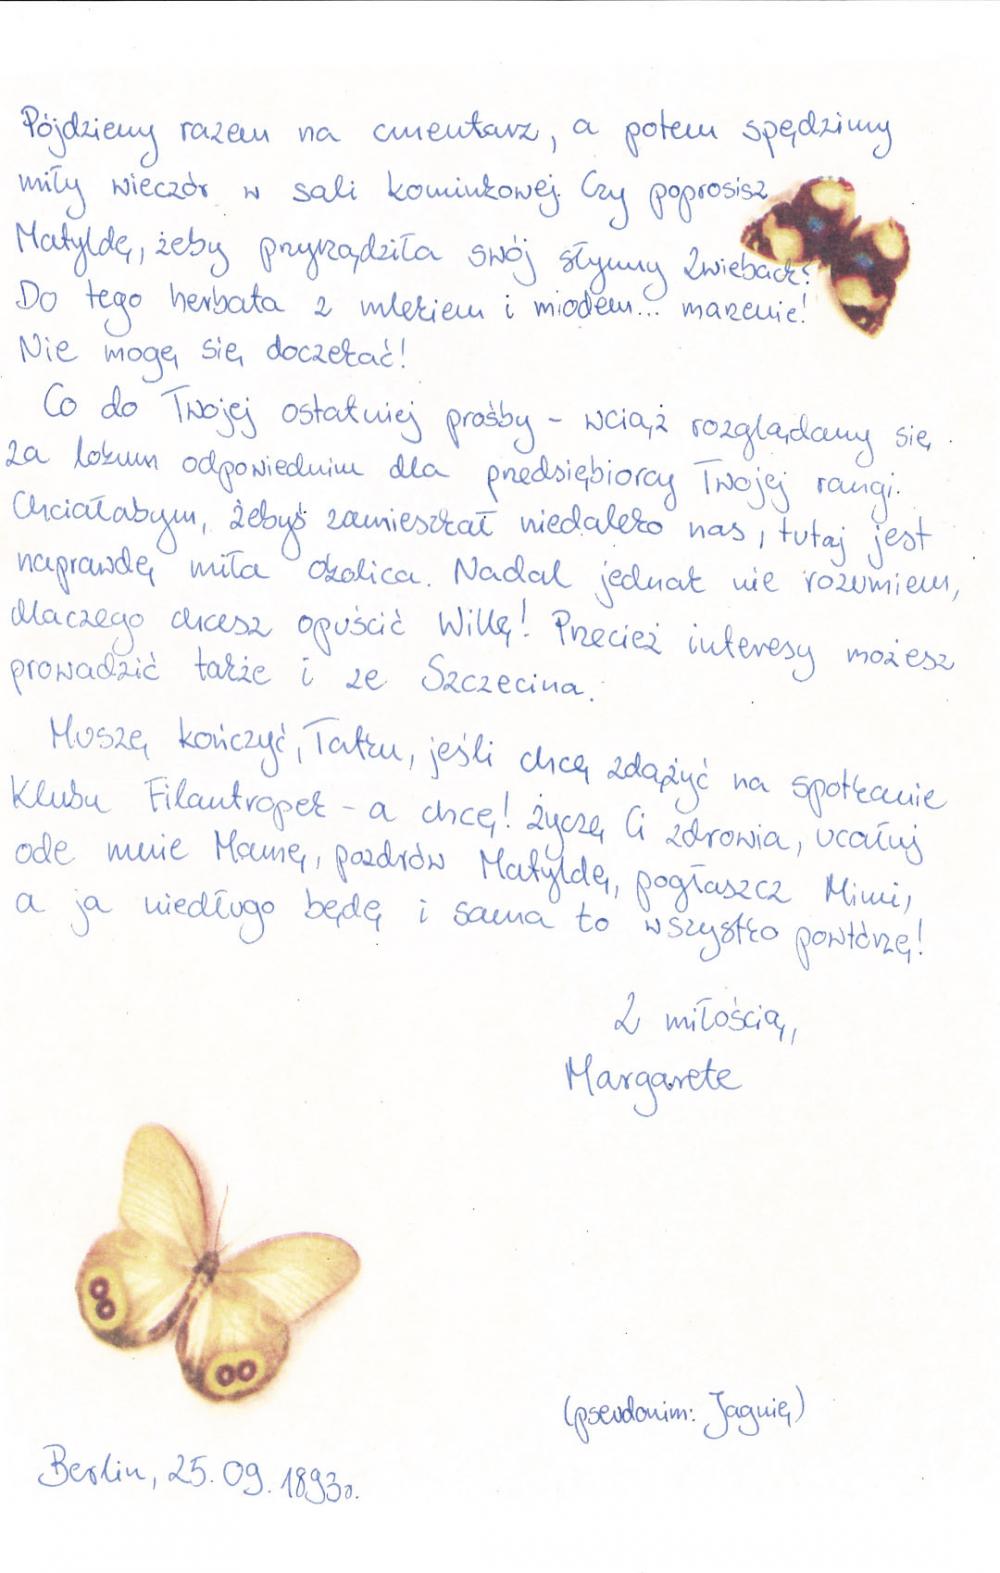 Pójdziemy razem na cmentarz, a potem spędzimy
miły wieczór w sali kominkowej. Czy poprosisz
Matyldę, żeby przyrządziła swój słynny Zwieback?
Do tego herbata z mlekiem i miodem... marzenie!
Nie mogę się doczekać!
Co do Twojej ostatniej prośby - wciąż rozglądamy się
za lokum odpowiednim dla przedsiębiorcy Twojej rangi.
Chciałabym, żebyś zamieszkał niedaleko nas, tutaj jest
naprawdę miła okolica. Nadal jednak nie rozumiem,
dlaczego chcesz opuścić Willę! Przecież interesy możesz
prowadzić także i ze Szczecina.
Muszę kończyć, Tatku, jeśli chcę zdążyć na spotkanie
Klubu Filantropek - a chcę! Życzę Ci zdrowia, ucałuj
ode mnie Mamę, pozdrów Matyldę, pogłaszcz Mimi,
a ja niedługo będę i sama to wszystko powtórzę!
Z miłością,
Margarete
(pseudonim: Jagnię)
Berlin, 25.09.1893r.